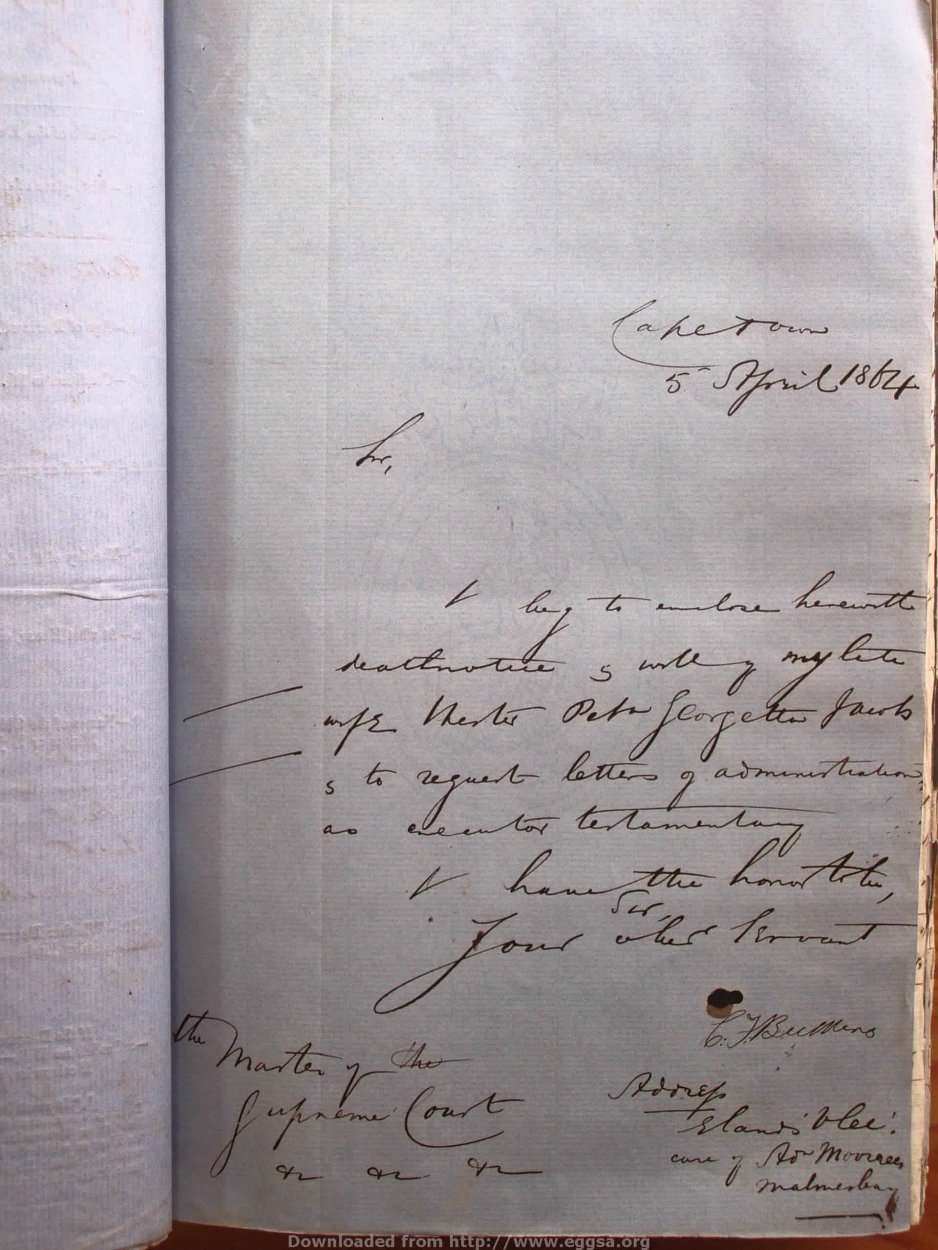 Capetown
5 April 1864
Sir,
I beg to enclose herewith
deathnotice & will of my late
wife Hester Petr Georgetta Jacobs
& to request letters of administration
as executor testamentary
I have the honor to be,
Sir,
Your obedt Servant
C. F.
the
Master of the
Supreme Court
&c &c &c
Address
Elands Vlei.
care of Adr
Malmesbury
Downloaded from http://www.eggsa.org